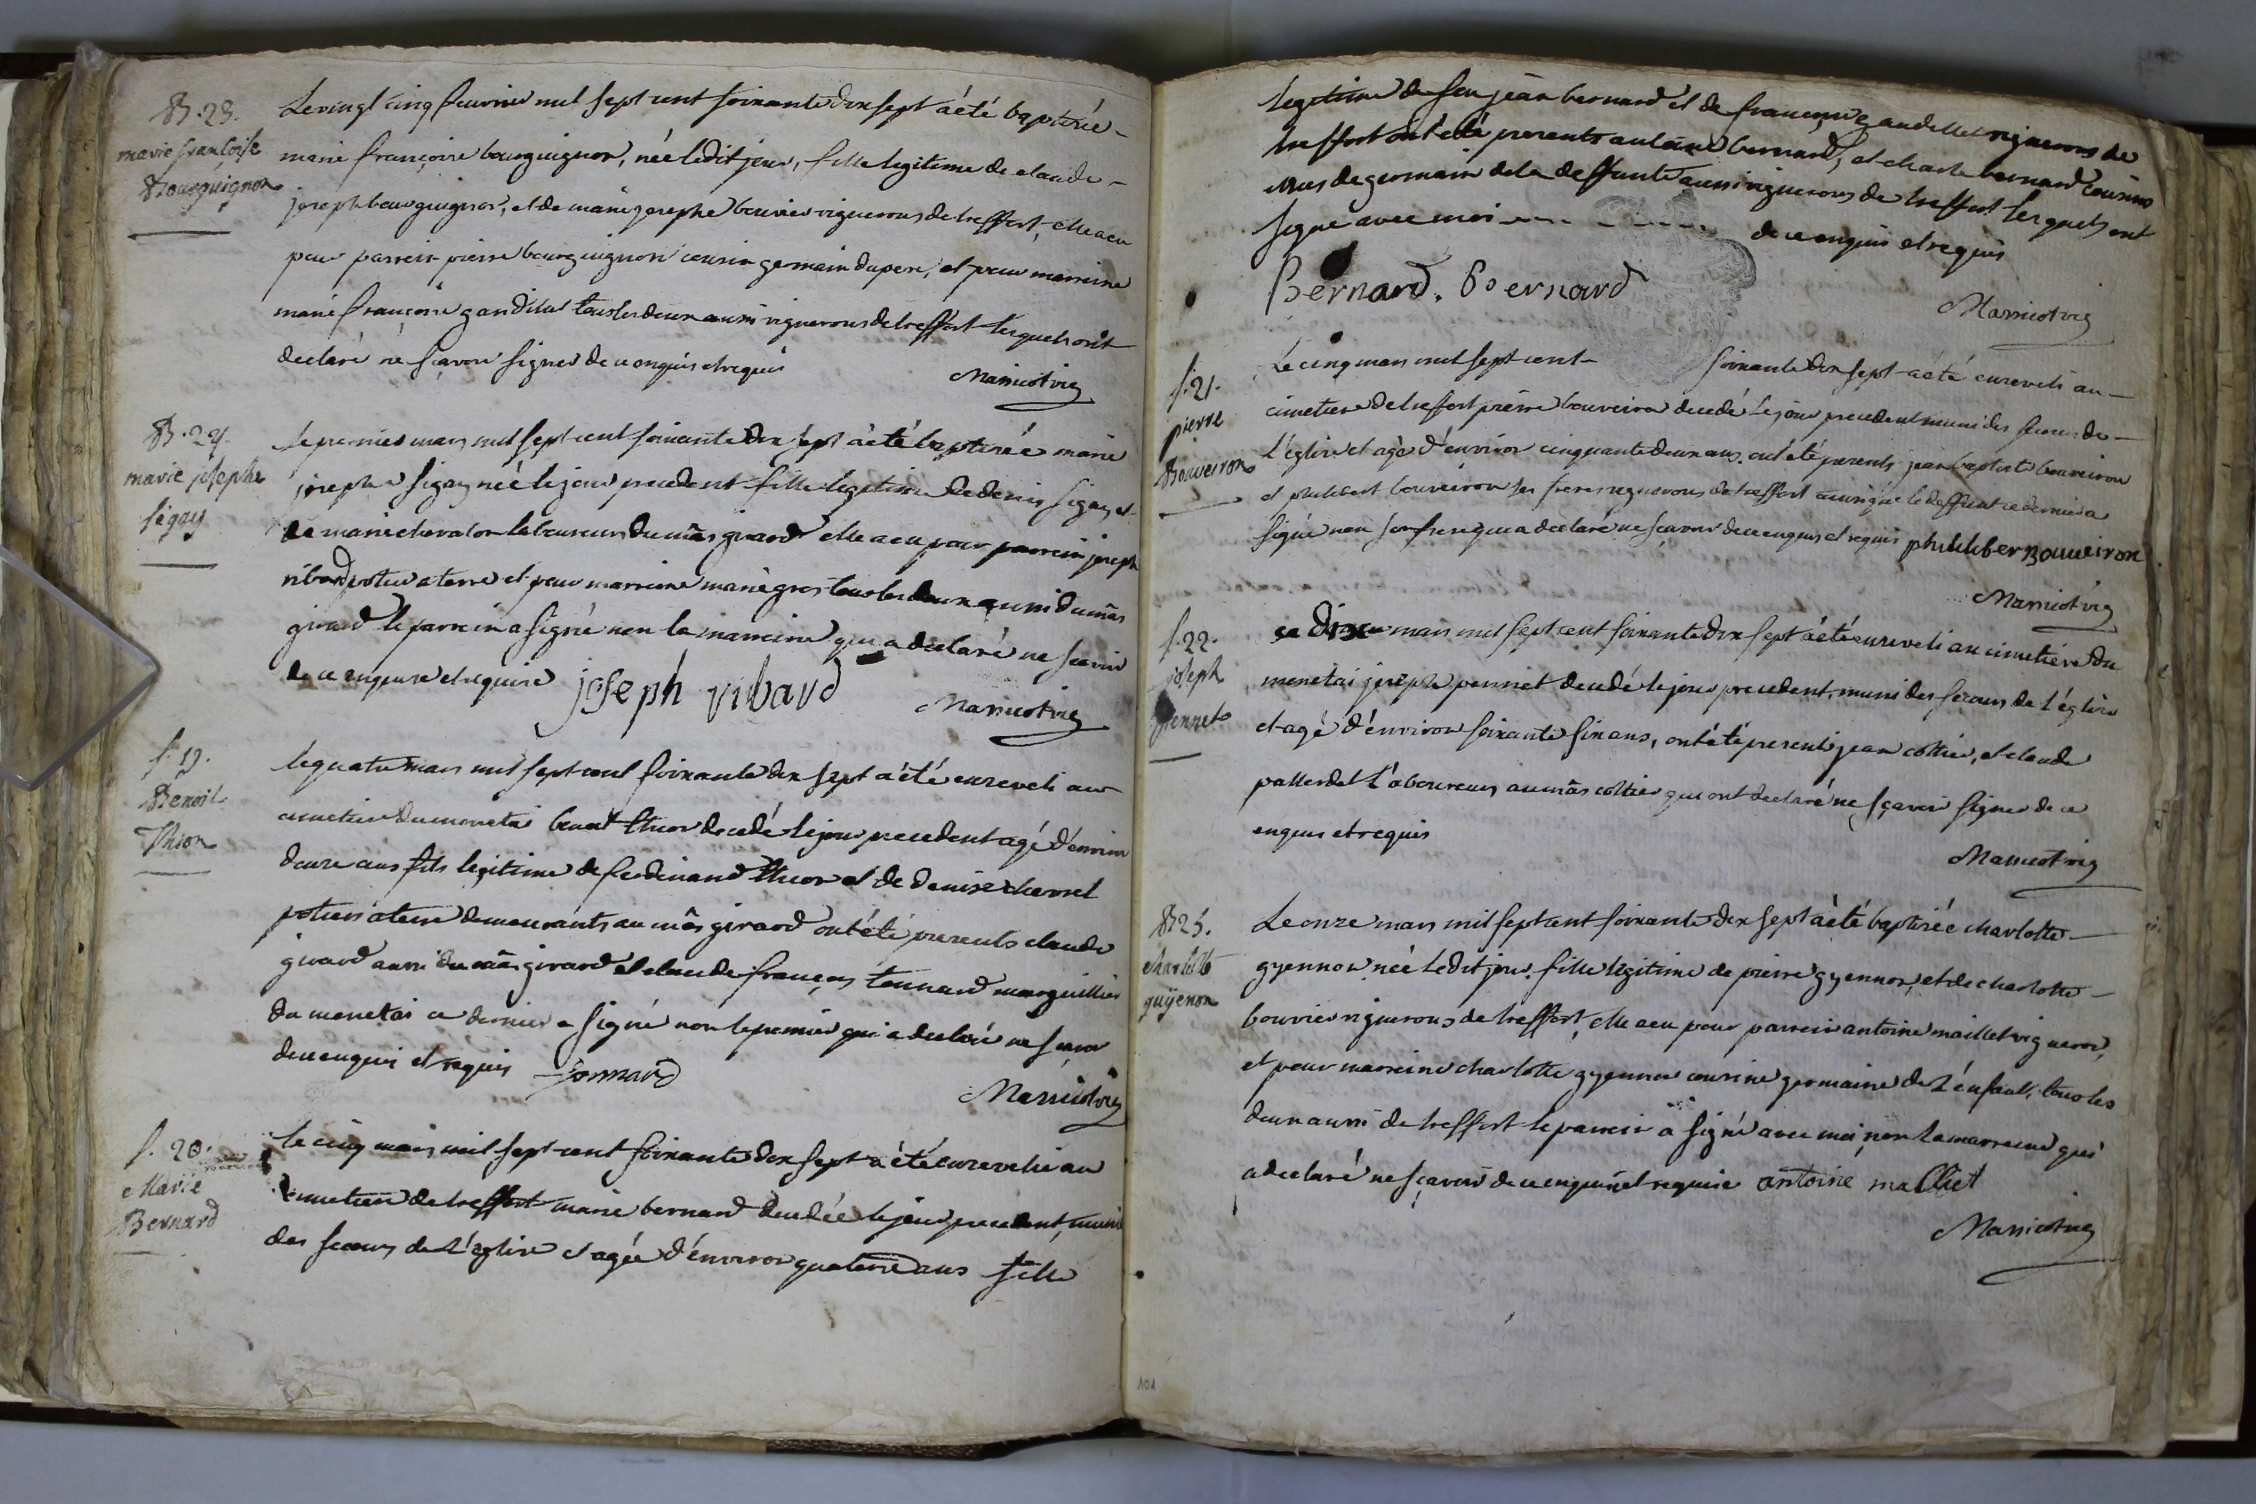 B. 23.
marie françoise
Bourguignon
Le vingt cinq fevrier mil sept cent soixante dix sept a été baptisée
marie françoise bourguignon, née ledit jour, fille legitime de claude
joseph bourguignon, et de marie josephe bouvier vignerons de treffort, elle a eu
pour parrein pierre bourguignon cousin germain du pere, et pour marreine
marie françoise gandillet tous les deux aussi vignerons de treffort lesquels ont
declaré ne sçavoir signer de ce enquis et requis
B. 24.
marie josephe
sigay
le premier mars mil sept cent soixante dix sept a été baptisée marie
josephe sigay née le jour precedent fille legitime de denis sigay et
de marie chevalon laboureurs du mâs girard elle a eu pour parrein joseph
ribaud potier a terre et pour marreine marie gros tous les deux aussi du mâs
girard le parrein a signé non la marreine qui a declaré ne sçavoir
de ce enquise et requise joseph ribaud
f. 19.
Benoit
Thion
le quatre mars mil sept cent soixante dix sept a été enseveli au
cimetiere du monetai benoit thion decedé le jour precedent agé d'environ
douze ans fils legitime de ferdinand thion et de denise chanel
potiers a terre demeurants au mâs girard ont été presents claude
girard aussi du mâs girard et claude françois tonnard marguillier
du monetai ce dernier a signé non le premier qui a declaré ne sçavoir
de ce enquis et requis tonnard
f. 20.
Marie
Bernard
le cinq mars mil sept cent soixante dix sept a été ensevelie au
cimetiere de treffort marie bernard decedée le jour precedent, munie
des secours de l'eglise et agée d'environ quatorze ans fille
legitime de feu jean bernard et de françoise gandillet vignerons de
treffort ont été presents antoine bernard, et charle bernard cousins
germain de la deffunte aussi vignerons de treffort lesquels ont
signe avec moi de ce enquis et requis
Bernard. Bernard
f. 21.
pierre
Bouveiron
Le cinq mars mil sept cent soixante dix sept a été enseveli au
cimetiere de treffort pierre bouveiron decedé le jour precedent muni des secours de
l'eglise et agé d'environ cinquante deux ans. ont été presents jean baptiste bouveiron
et philibert bouveiron ses freres vignerons de treffort ainsi que le deffunt ce dernier a
signé non son frere qui a declaré ne sçavoir de ce enquis et requis philibber Bouveiron
f. 22.
joseph
pennet
Le Dix mars mil sept cent soixante dix sept a été enseveli au cimetiére du
monetai joseph pennet decedé le jour precedent, muni des secours de l'eglise
et agé d'environ soixante six ans, ont été presents jean cottier, et claude
laboureurs au mâs cottier qui ont declaré ne sçavoir signer de ce
enquis et requis
B 25.
charlotte
guÿenon
Le onze mars mil sept cent soixante dix sept a été baptisée charlotte
gyennon née ledit jour. fille legitime de pierre gyennon, et de charlotte
bouvier vignerons de treffort, elle a eu pour parrein antoine maillet vigneron,
et pour marreine charlotte gyennon cousine germaine de l'enfant, tous les
deux aussi de treffort le parrein a signé avec moi, non la marreine qui
a declaré ne sçavoir de ce enquise et requise antoine malliet